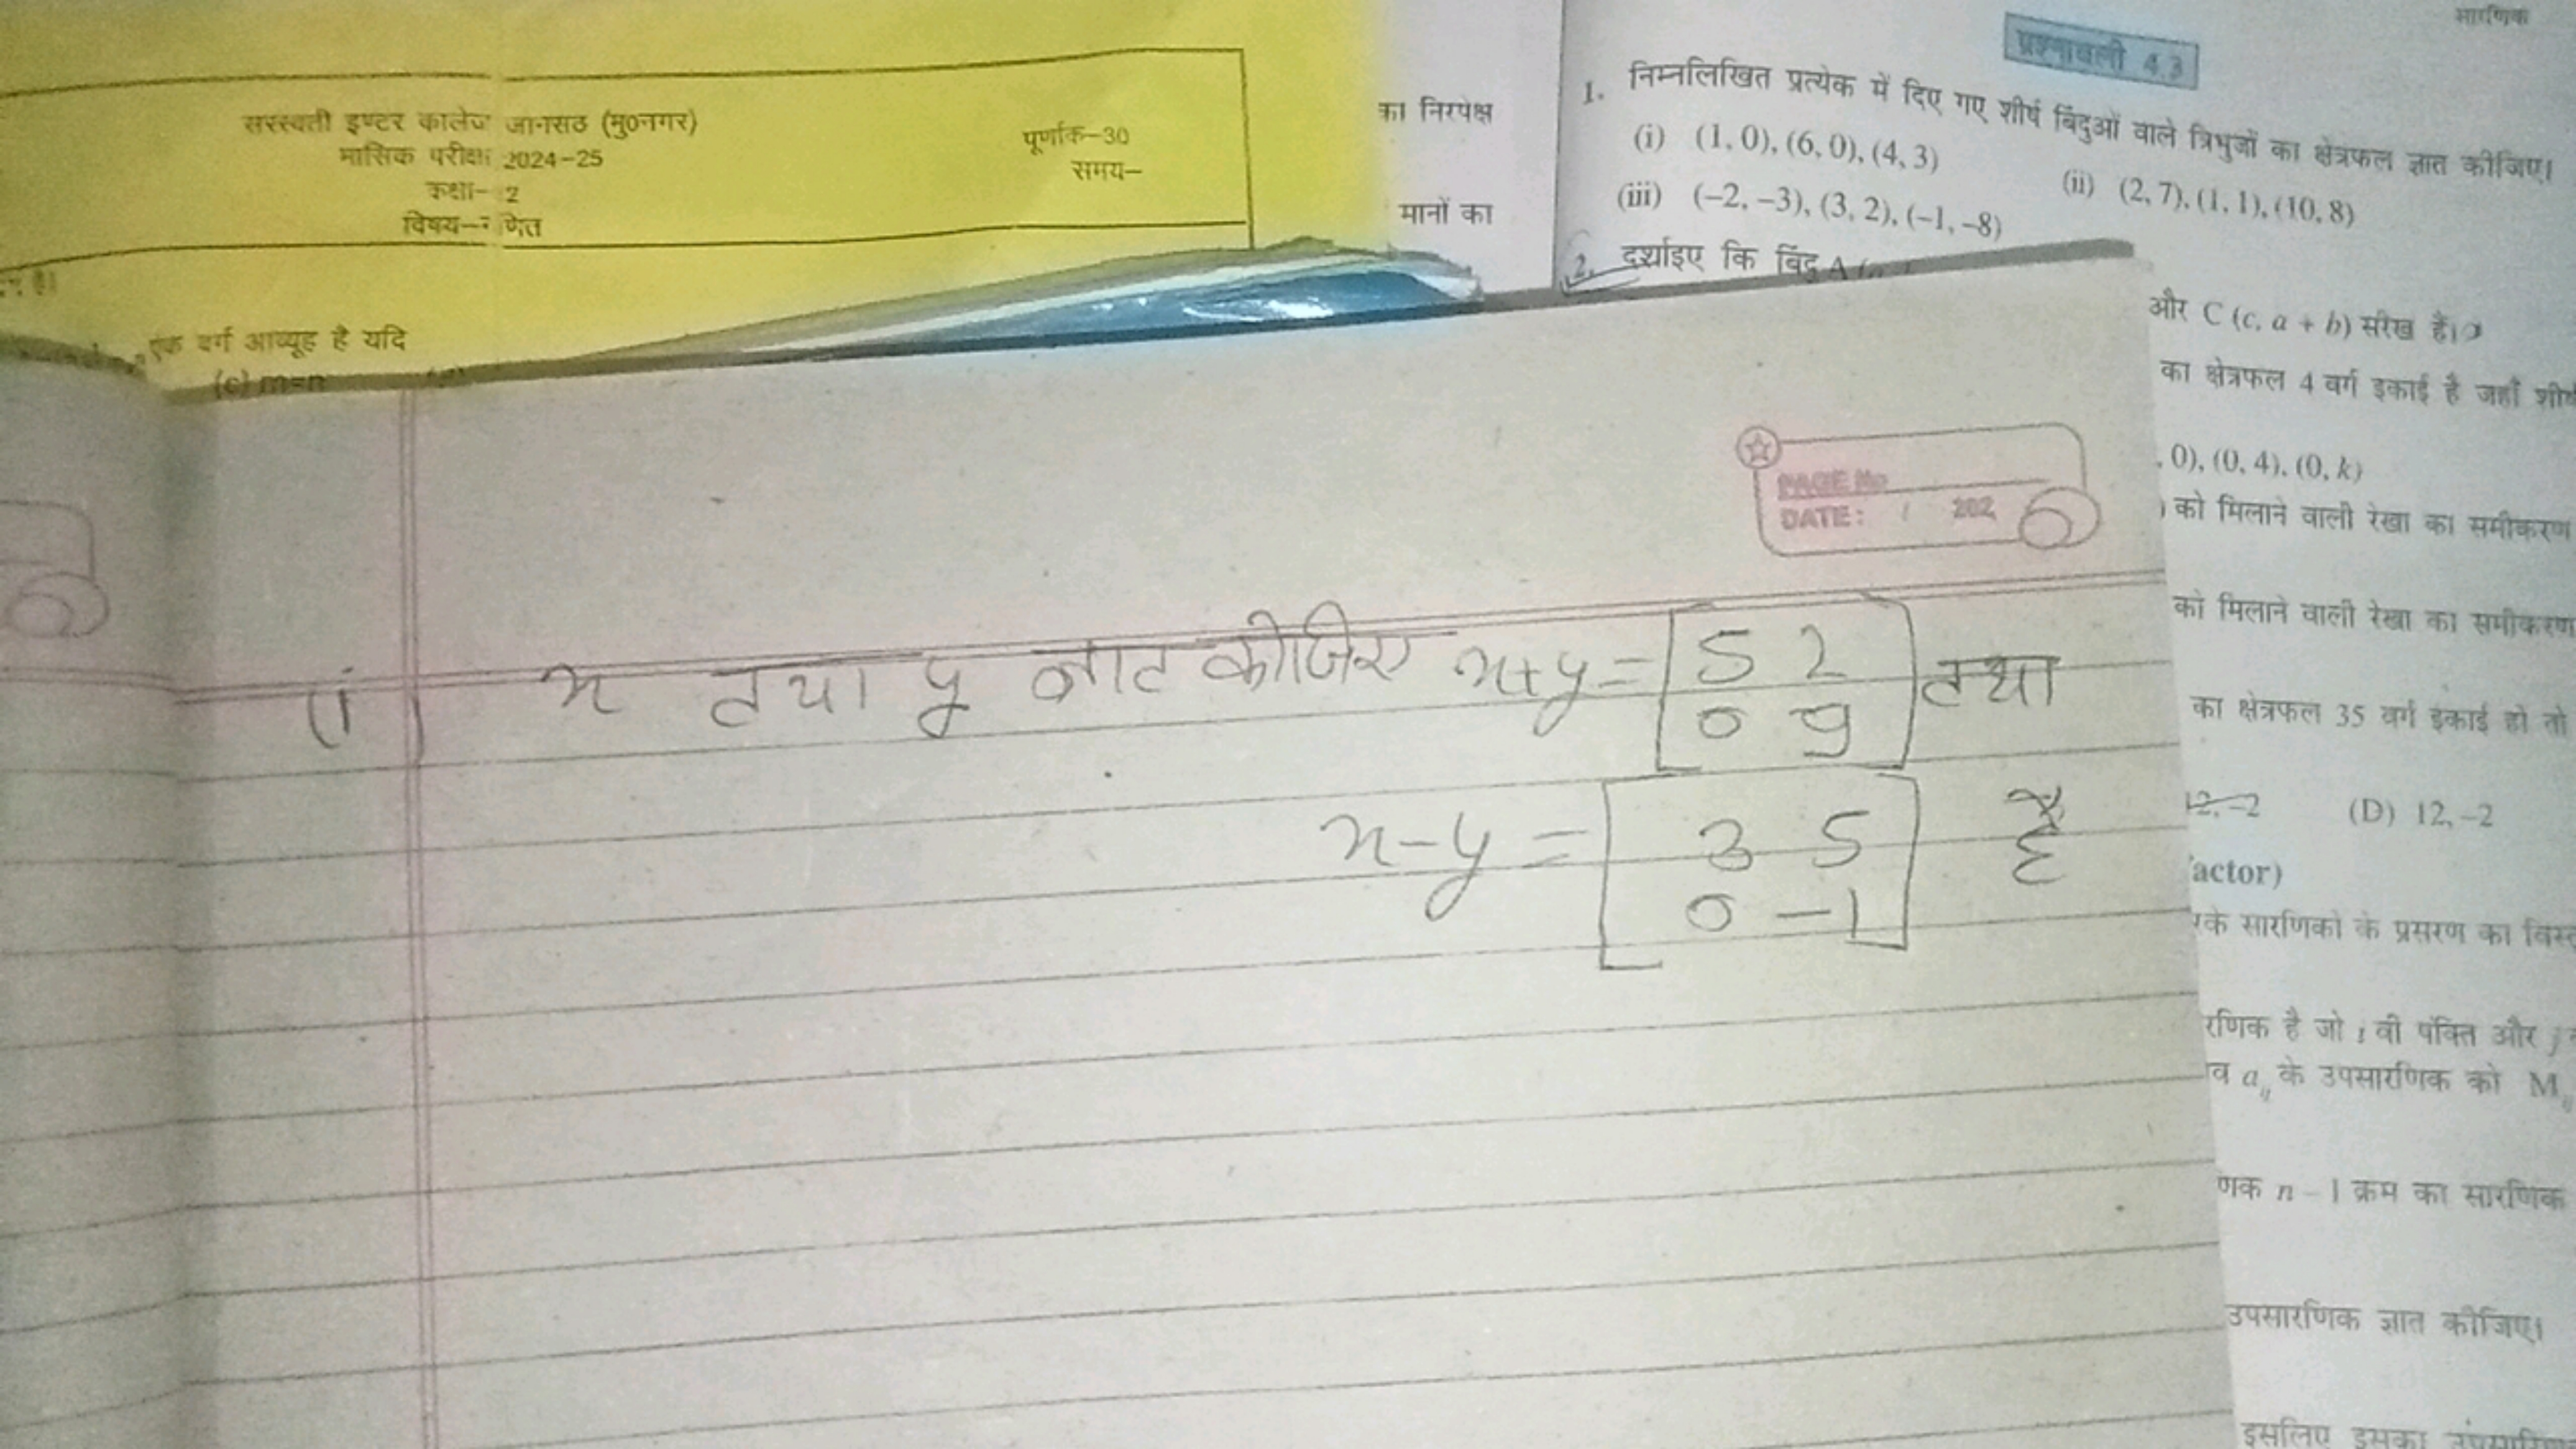 सरस्वती इण्टर कालेज जानसठ (मु0नगर)
मासिक परीक्षा 2024-25
कक्षा- 2
विषय- णित
पूर्णांक-30
समय-
एक वर्ग आव्यूह है यदि
(c) m=n
का निरपेक्ष
मानों का
सारणिक
प्रश्नावली 4.3
1. निम्नलिखित प्रत्येक में दिए गए शीर्ष बिंदुओं वाले त्रिभुजों का क्षेत्रफल ज्ञात कीजिए।
(i) (1, 0), (6, 0), (4, 3)
(ii) (2, 7), (1, 1), (10, 8)
(iii) (-2, -3), (3, 2), (-1, -8)
2. दर्शाइए कि बिंदु A
और C (c, a + b) संरेख हैं।
का क्षेत्रफल 4 वर्ग इकाई है जहाँ शीर्ष
, 0), (0, 4), (0, k)
) को मिलाने वाली रेखा का समीकरण
को मिलाने वाली रेखा का समीकरण
का क्षेत्रफल 35 वर्ग इकाई हो तो
12, -2 (D) 12, -2
factor)
रके सारणिकों के प्रसरण का
रणिक है जो i वी पंक्ति और j
व aij के उपसारणिक को Mij
णिक n - 1 क्रम का सारणिक
उपसारणिक ज्ञात कीजिए।
इसलिए इसका
PAGE No
DATE: / 202
(i) x तथा y ज्ञात कीजिए x+y = [5 2
0 9] तथा
x-y = [3 5
0 -1] है